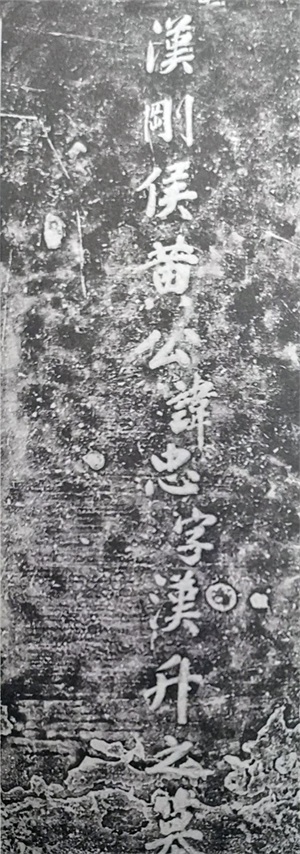 漢剛侯黃公諱忠字漢升之墓